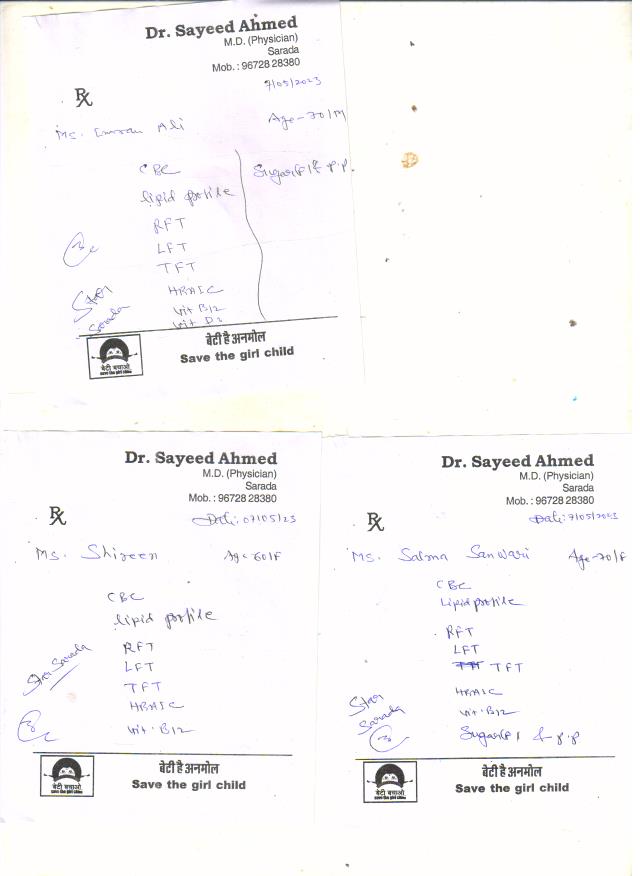 Dr. Sayeed Ahmed
M.D. (Physician)
Sarada
Mob. : 96728 28380
7/05/2023
Rx
Age - 70/M
Ms. Imran Ali
CBC
Sugar(F) & P.P.
lipid profile
RFT
LFT
TFT
HBA1C
Vit B12
Vit D3
Star
Sarada
बेटी है अनमोल
Save the girl child
बेटी बचाओ
save the girl child
Dr. Sayeed Ahmed
M.D. (Physician)
Sarada
Mob. : 96728 28380
Date: 07/05/23
Rx
Ms. Shireen Age 60/F
CBC
lipid profile
RFT
LFT
TFT
HBA1C
Vit. B12
Star Sarada
बेटी है अनमोल
Save the girl child
बेटी बचाओ
save the girl child
Dr. Sayeed Ahmed
M.D. (Physician)
Sarada
Mob. : 96728 28380
Date: 7/05/2023
Rx
Ms. Salma Sanwari Age - 70/F
CBC
Lipid profile
RFT
LFT
TFT
HBA1C
Vit. B12
Sugar(F) & P.P
Star
Sarada
बेटी है अनमोल
Save the girl child
बेटी बचाओ
save the girl child